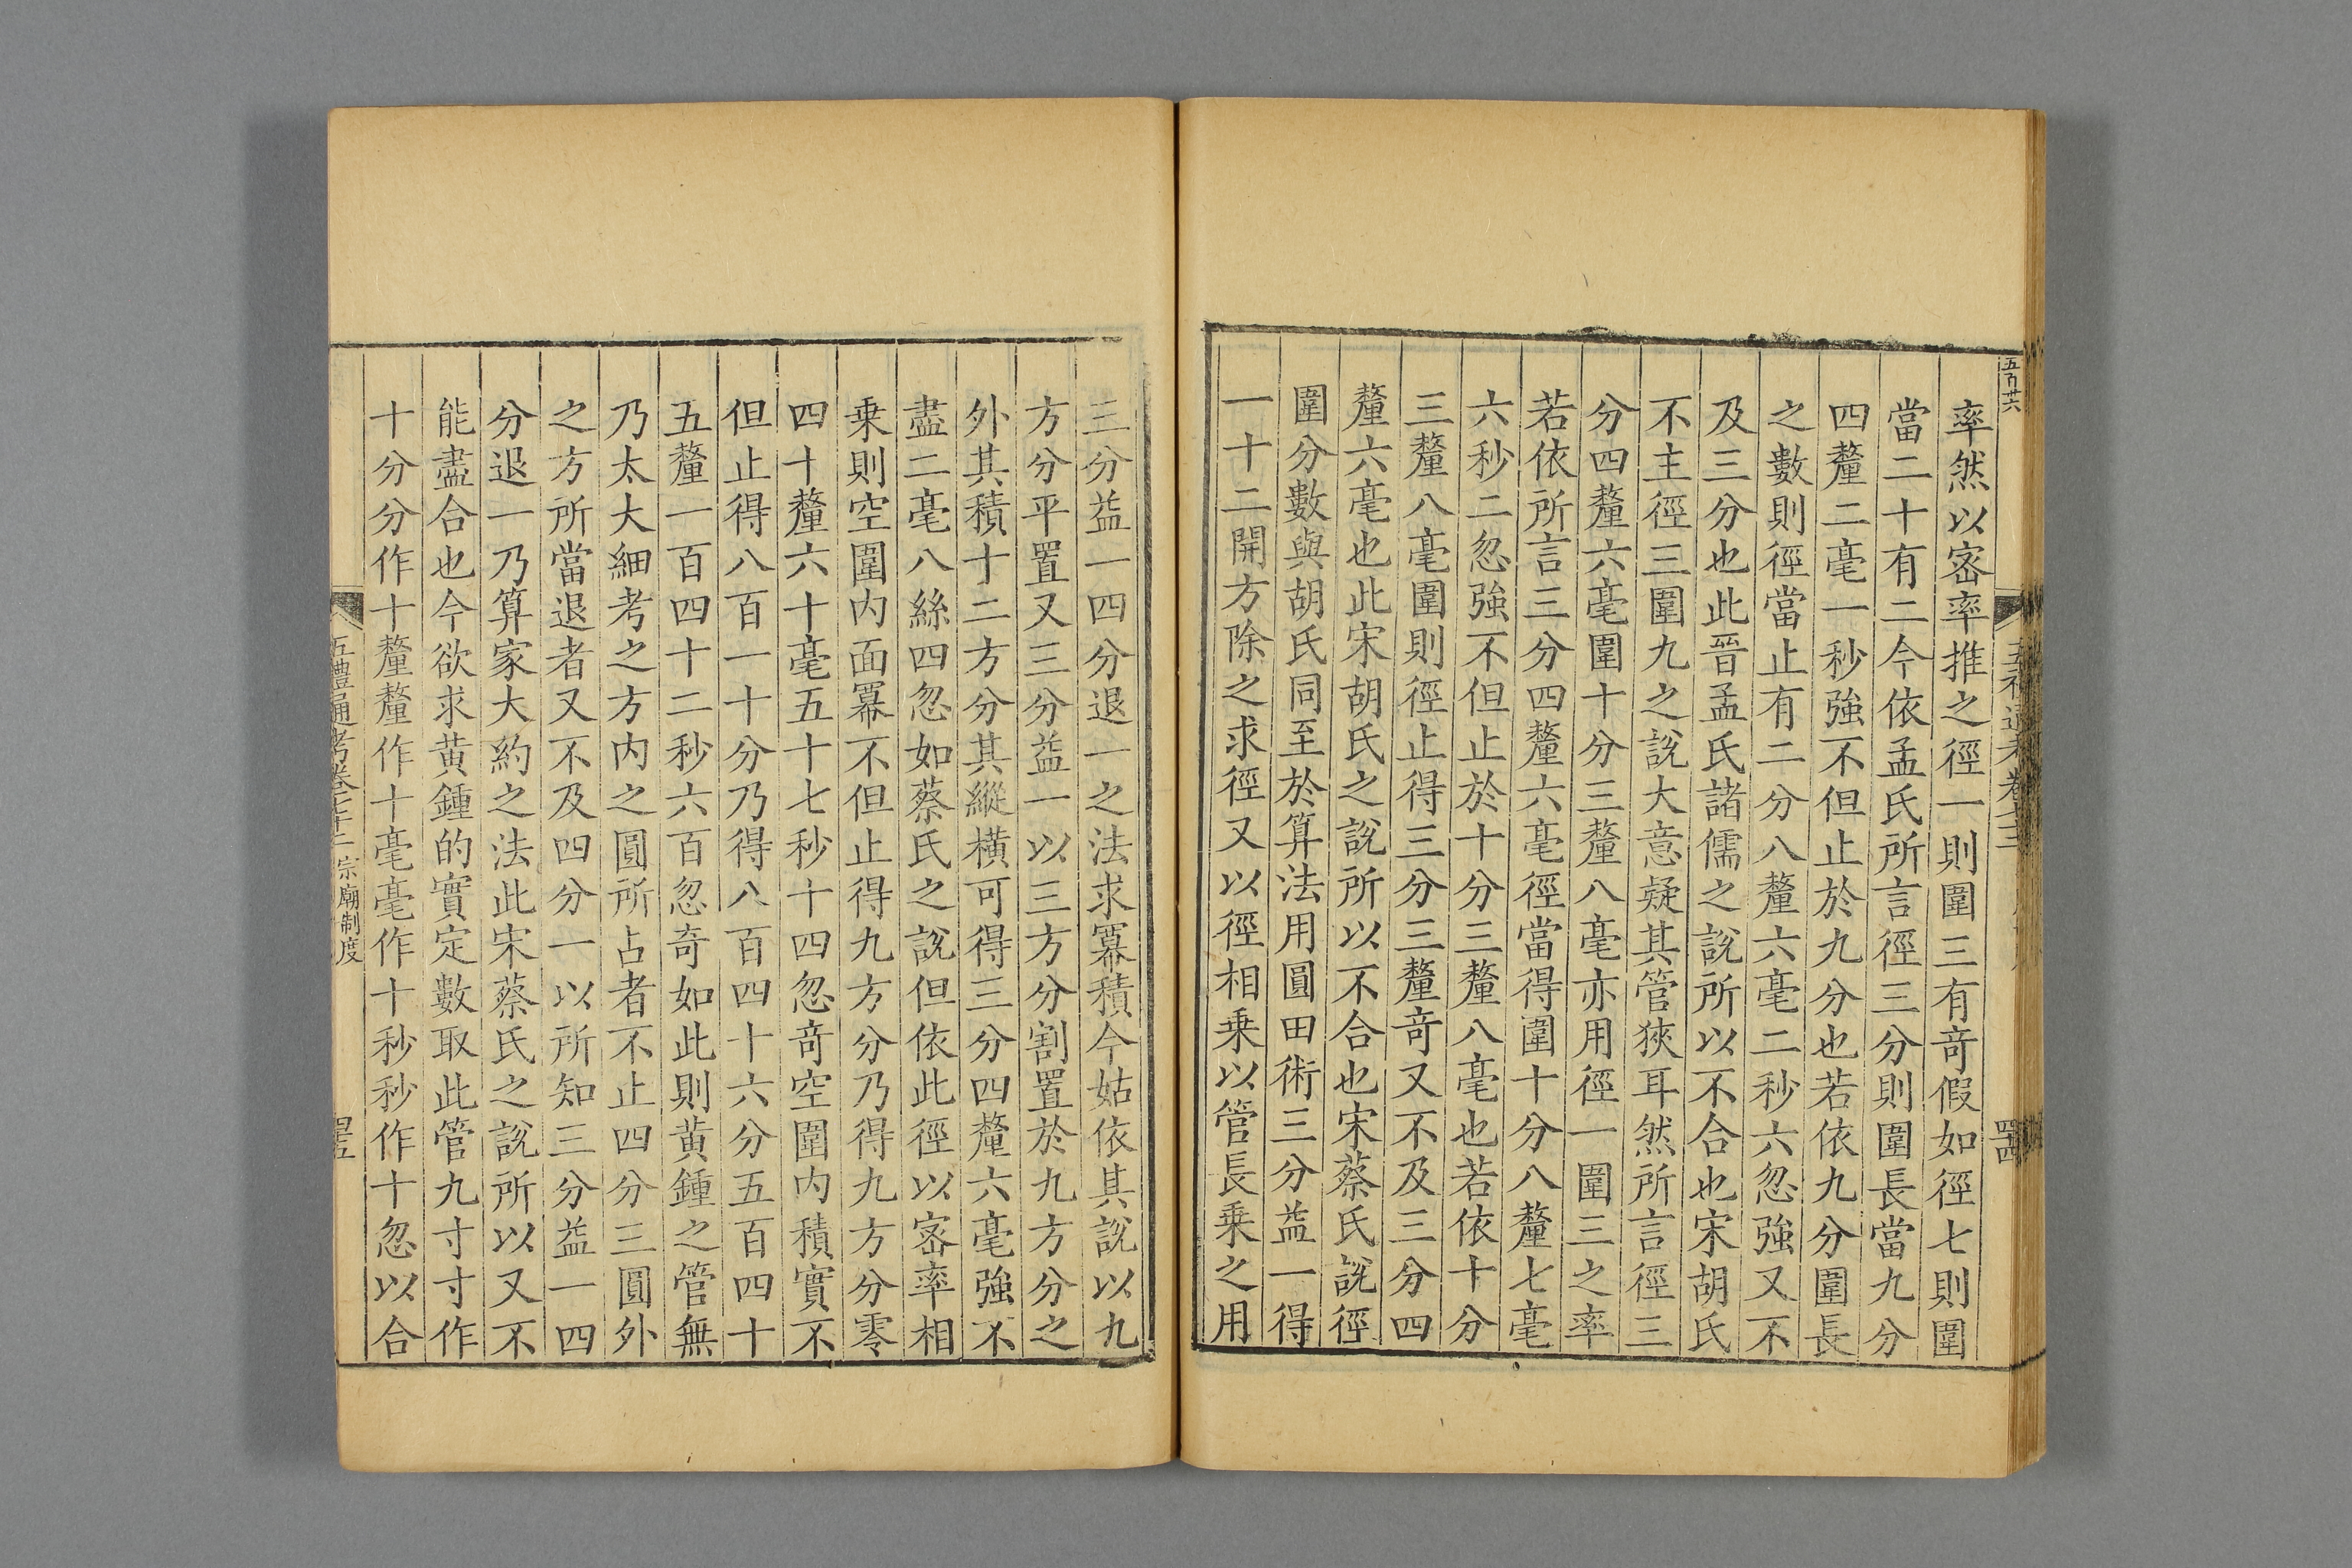 率然以密率推之徑一則圍三有竒假如徑七則圍
當二十有二今依孟氏所言徑三分則圍長當九分
四釐二毫一秒強不但止於九分也若依九分圍長
之數則徑當止有二分八釐六毫二秒六忽強又不
及三分也此晉孟氏諸儒之說所以不合也宋胡氏
不主徑三圍九之說大意疑其管狹耳然所言徑三
分四釐六毫圍十分三釐八毫亦用徑一圍三之率
若依所言三分四釐六毫徑當得圍十分八釐七毫
六秒二忽強不但止於十分三釐八毫也若依十分
三釐八毫圍則徑止得三分三釐竒又不及三分四
釐六毫也此宋胡氏之說所以不合也宋蔡氏說徑
圍分數與胡氏同至於算法用圓田術三分益一得
一十二開方除之求徑又以徑相乗以管長乗之用
三分益一四分退一之法求冪積今姑依其說以九
方分平置又三分益一以三方分割置於九方分之
外其積十二方分其縱橫可得三分四釐六毫強不
盡二毫八絲四忽如蔡氏之說但依此徑以密率相
乗則空圍内面冪不但止得九方分乃得九方分零
四十釐六十毫五十七秒十四忽竒空圍内積實不
但止得八百一十分乃得八百四十六分五百四十
五釐一百四十二秒六百忽奇如此則黄鍾之管無
乃太大細考之方内之圓所占者不止四分三圓外
之方所當退者又不及四分一以所知三分益一四
分退一乃算家大約之法此宋蔡氏之說所以又不
能盡合也今欲求黄鍾的實定數取此管九寸寸作
十分分作十釐釐作十毫毫作十秒秒作十忽以合
五禮通考卷七十二 宗廟制度